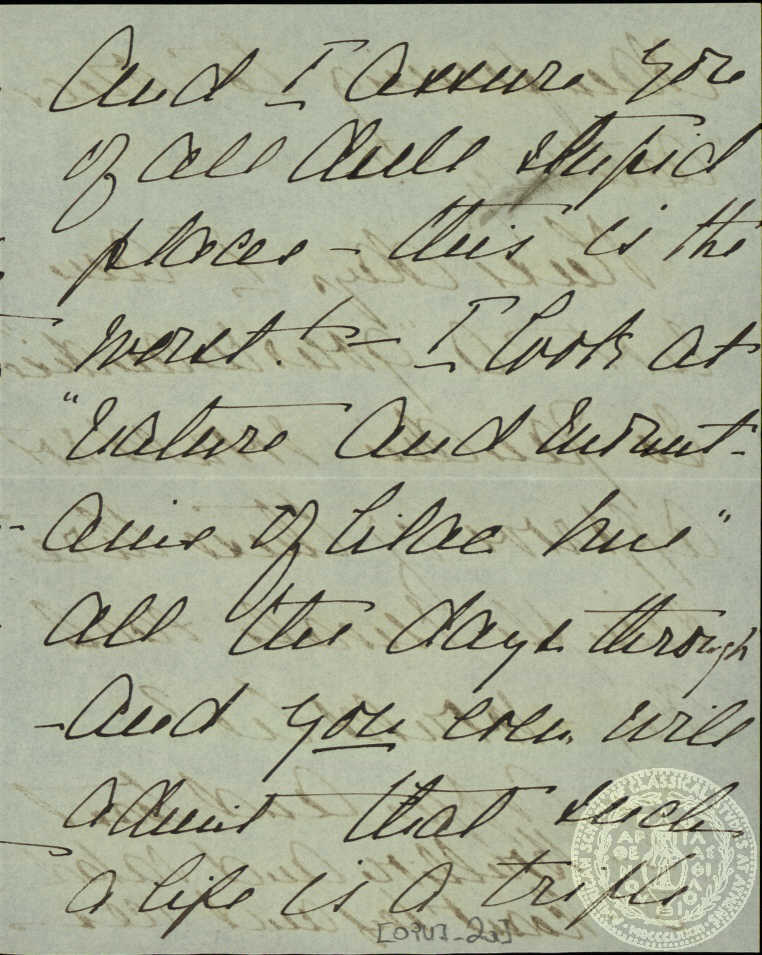 And I assure you
of all dull stupid
places - this is the
worst! - I look at
"Nature and mount-
ains of lilac hue"
all the days through
- And you even will
admit that such
a life is a trifle